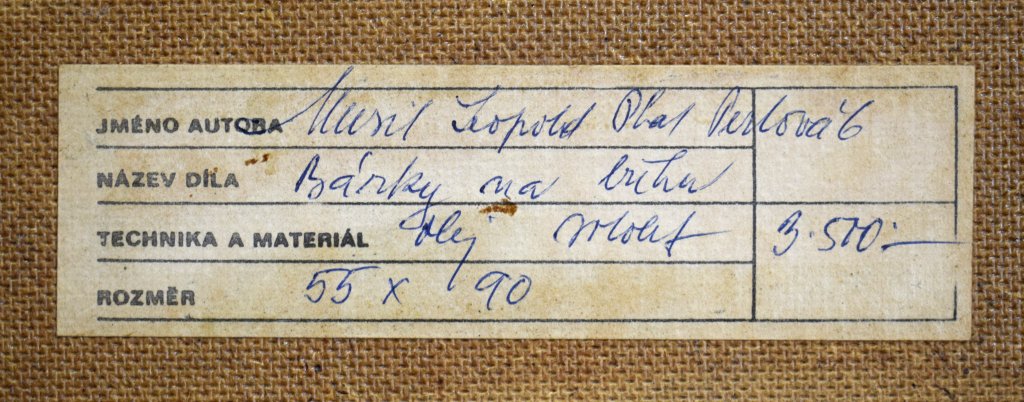 JMÉNO AUTORA Musil Leopold Phat
NÁZEV DÍLA Bárky na břehu
TECHNIKA A MATERIÁL olej 3.500.-
ROZMĚR 55 x 90